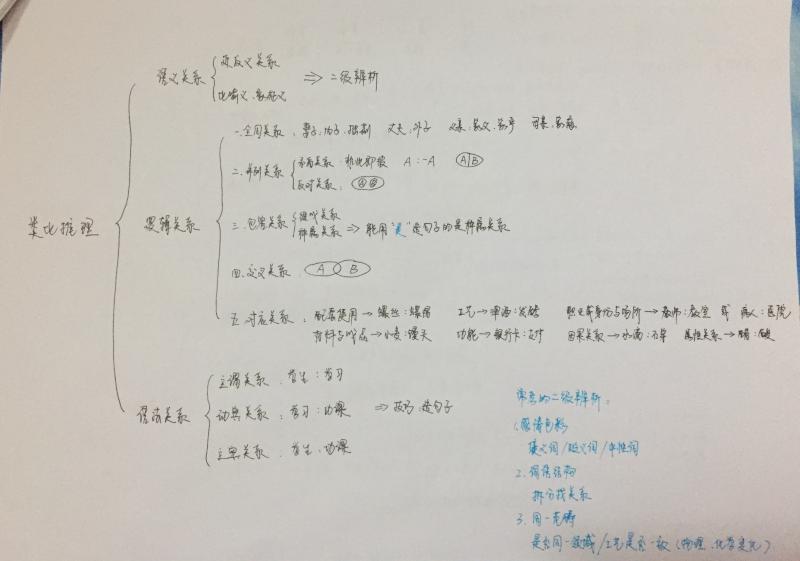 类比推理
语义关系
近反义关系
比喻义、象征义
⇒ 二级辨析
逻辑关系
一、全同关系:
丈夫:外子
二、并列关系
矛盾关系:非此即彼 A:-A A B
反对关系:
三、包容关系
组成关系
种属关系 ⇒ 能用“是”造句子的是种属关系
四、交叉关系: A B
五、对应关系:配套使用→螺丝:螺母 工艺→啤酒:发酵 职业或身份与场所→教师:教室 或 病人:医院
材料与成品→小麦:馒头 功能→银行卡:支付 因果关系→ 属性关系→醋:酸
语法关系
主谓关系:学生:学习
动宾关系:学习:功课 ⇒ 技巧:造句子
主宾关系:学生:功课
常考的二级辨析:
1.感情色彩
褒义词/贬义词/中性词
2.词语结构
拆分找关系
3.同一范畴
是否同一领域/工艺是否一致(物理、化学变化)